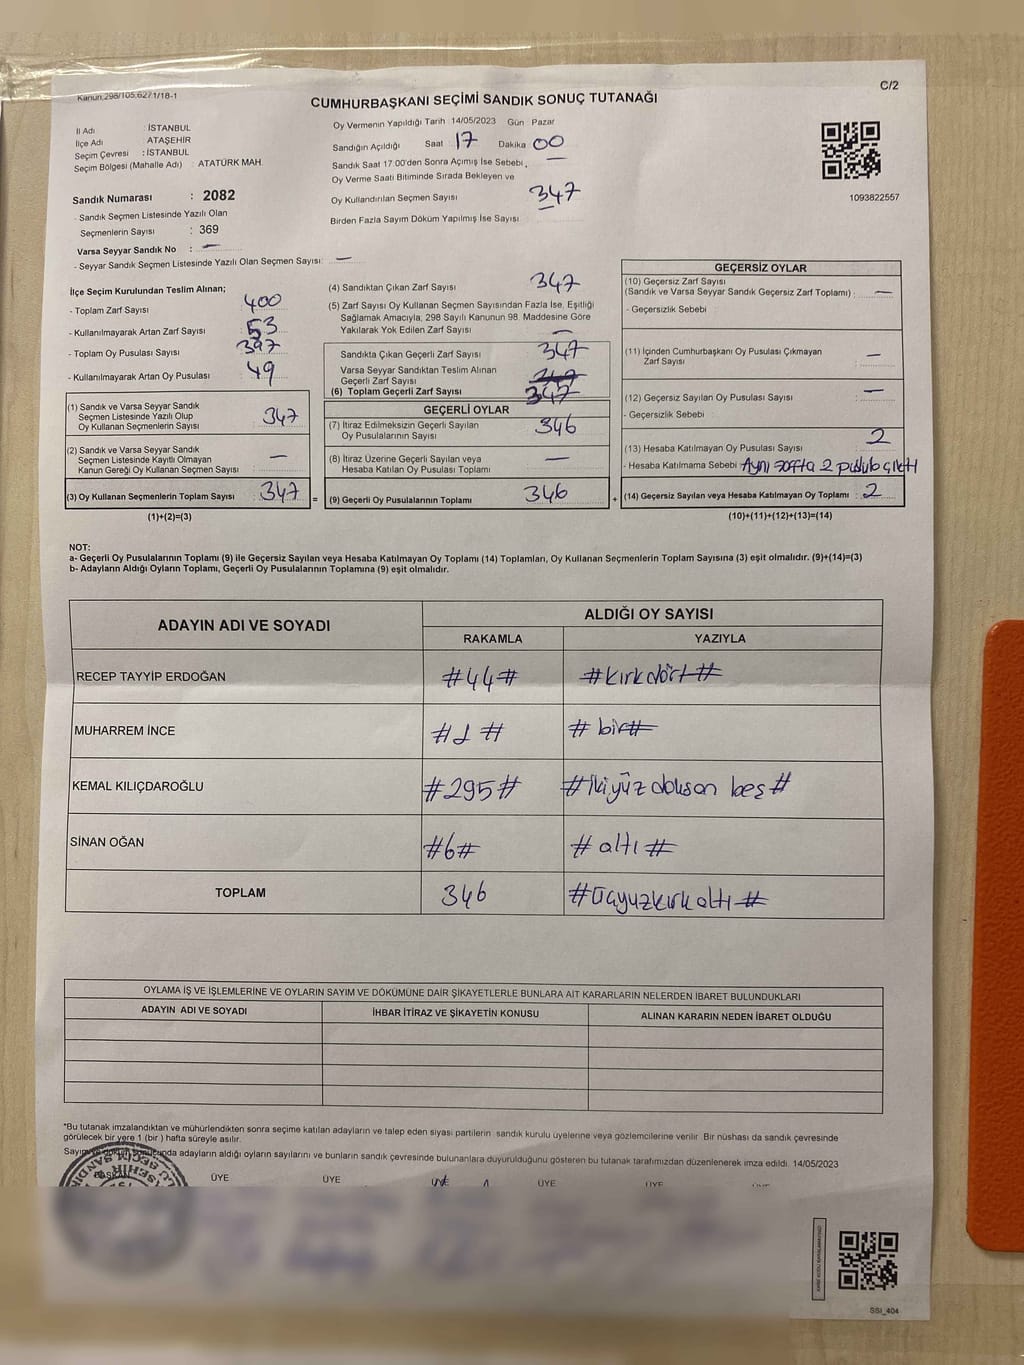 Kanun:298/105.6271/18-1
C/2
CUMHURBAŞKANI SEÇİMİ SANDIK SONUÇ TUTANAĞI
İl Adı : İSTANBUL
İlçe Adı : ATAŞEHİR
Seçim Çevresi : İSTANBUL
Seçim Bölgesi (Mahalle Adı) : ATATÜRK MAH.
Sandık Numarası : 2082
- Sandık Seçmen Listesinde Yazılı Olan
Seçmenlerin Sayısı : 369
Varsa Seyyar Sandık No : —
- Seyyar Sandık Seçmen Listesinde Yazılı Olan Seçmen Sayısı: —
Oy Vermenin Yapıldığı Tarih : 14/05/2023 Gün : Pazar
Sandığın Açıldığı Saat 17 Dakika 00
Sandık Saat 17:00'den Sonra Açımış İse Sebebi —
Oy Verme Saati Bitiminde Sırada Bekleyen ve
Oy Kullandırılan Seçmen Sayısı 347
Birden Fazla Sayım Döküm Yapılmış İse Sayısı
1093822557
İlçe Seçim Kurulundan Teslim Alınan;
- Toplam Zarf Sayısı 400
- Kullanılmayarak Artan Zarf Sayısı 53
- Toplam Oy Pusulası Sayısı
- Kullanılmayarak Artan Oy Pusulası 49
(1) Sandık ve Varsa Seyyar Sandık
Seçmen Listesinde Yazılı Olup
Oy Kullanan Seçmenlerin Sayısı 347
(2) Sandık ve Varsa Seyyar Sandık
Seçmen Listesinde Kayıtlı Olmayan
Kanun Gereği Oy Kullanan Seçmen Sayısı —
(3) Oy Kullanan Seçmenlerin Toplam Sayısı 347 =
(1)+(2)=(3)
(4) Sandıktan Çıkan Zarf Sayısı 347
(5) Zarf Sayısı Oy Kullanan Seçmen Sayısından Fazla İse, Eşitliği
Sağlamak Amacıyla, 298 Sayılı Kanunun 98. Maddesine Göre
Yakılarak Yok Edilen Zarf Sayısı —
Sandıkta Çıkan Geçerli Zarf Sayısı 347
Varsa Seyyar Sandıktan Teslim Alınan
Geçerli Zarf Sayısı
(6) Toplam Geçerli Zarf Sayısı 347
GEÇERLİ OYLAR
(7) İtiraz Edilmeksizin Geçerli Sayılan
Oy Pusulalarının Sayısı 346
(8) İtiraz Üzerine Geçerli Sayılan veya
Hesaba Katılan Oy Pusulası Toplamı —
(9) Geçerli Oy Pusulalarının Toplamı 346 +
GEÇERSİZ OYLAR
(10) Geçersiz Zarf Sayısı
(Sandık ve Varsa Seyyar Sandık Geçersiz Zarf Toplamı) : —
- Geçersizlik Sebebi
(11) İçinden Cumhurbaşkanı Oy Pusulası Çıkmayan
Zarf Sayısı : —
(12) Geçersiz Sayılan Oy Pusulası Sayısı : —
- Geçersizlik Sebebi
(13) Hesaba Katılmayan Oy Pusulası Sayısı : 2
- Hesaba Katılmama Sebebi Aynı zarfta 2 pusula çıktı
(14) Geçersiz Sayılan veya Hesaba Katılmayan Oy Toplamı : 2
(10)+(11)+(12)+(13)=(14)
NOT:
a- Geçerli Oy Pusulalarının Toplamı (9) ile Geçersiz Sayılan veya Hesaba Katılmayan Oy Toplamı (14) Toplamları, Oy Kullanan Seçmenlerin Toplam Sayısına (3) eşit olmalıdır. (9)+(14)=(3)
b- Adayların Aldığı Oyların Toplamı, Geçerli Oy Pusulalarının Toplamına (9) eşit olmalıdır.
ADAYIN ADI VE SOYADI ALDIĞI OY SAYISI
RAKAMLA YAZIYLA
RECEP TAYYİP ERDOĞAN #44# #kırkdört#
MUHARREM İNCE #1# #bir#
KEMAL KILIÇDAROĞLU #295# #ikiyüz doksan beş#
SİNAN OĞAN #6# #altı#
TOPLAM 346 #Üçyüzkırkaltı#
OYLAMA İŞ VE İŞLEMLERİNE VE OYLARIN SAYIM VE DÖKÜMÜNE DAİR ŞİKAYETLERLE BUNLARA AİT KARARLARIN NELERDEN İBARET BULUNDUKLARI
ADAYIN ADI VE SOYADI İHBAR İTİRAZ VE ŞİKAYETİN KONUSU ALINAN KARARIN NEDEN İBARET OLDUĞU
*Bu tutanak imzalandıktan ve mühürlendikten sonra seçime katılan adayların ve talep eden siyasi partilerin sandık kurulu üyelerine veya gözlemcilerine verilir. Bir nüshası da sandık çevresinde
görülecek bir yere 1 (bir) hafta süreyle asılır.
Sayım ve döküm sonucunda adayların aldığı oyların sayılarını ve bunların sandık çevresinde bulunanlara duyurulduğunu gösteren bu tutanak tarafımızdan düzenlenerek imza edildi. 14/05/2023
BAŞKAN ÜYE ÜYE ÜYE ÜYE ÜYE ÜYE
SSI_404